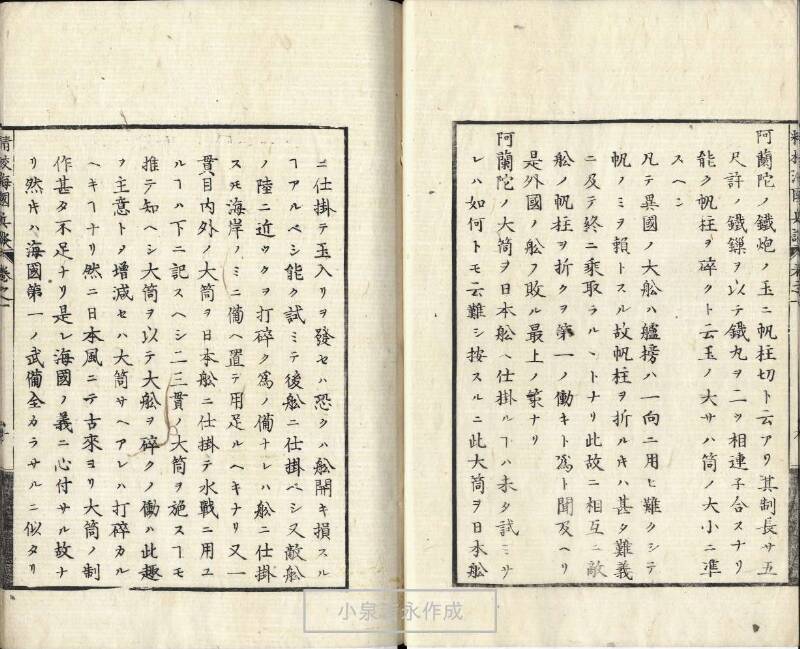 阿蘭陀ノ鐵炮ノ玉ニ帆柱切ト云アリ其制長サ五
尺許ノ鐵鏁ヲ以テ鐵丸ヲ二ツ相連子合スナリ
能ク帆柱ヲ碎クト云玉ノ大サハ筒ノ大小ニ準
スヘシ
凡テ異國ノ大舩ハ艫搒ハ一向ニ用ヒ難クシテ
帆ノミヲ頼トスル故帆柱ヲ折ルキハ甚タ難義
ニ及テ終ニ乗取ラルヽトナリ此故ニ相互ニ敵
舩ノ帆柱ヲ折クヲ第一ノ働キト爲ト聞及ヘリ
是外國ノ舩ノ敗ル最上ノ策ナリ
阿蘭陀ノ大筒ヲ日本舩ヘ仕掛ルヿハ未タ試ミサ
レハ如何トモ云難シ按スルニ此大筒ヲ日本舩
ニ仕掛テ玉入リヲ發セハ恐クハ舩開キ損スル
ヿアルベシ能ク試ミテ後舩ニ仕掛ベシ又敵舩
ノ陸ニ近ツクヲ打碎ク爲ノ備ナレハ舩ニ仕掛
ストモ海岸ノミニ備ヘ置テ用足ルヘキナリ又一
貫目内外ノ大筒ヲ日本舩ニ仕掛テ水戰ニ用ユ
ルヿハ下ニ記スヘシ二三貫ノ大筒ヲ施スヿモ
推テ知ヘシ大筒ヲ以テ大舩ヲ碎クノ働ハ此趣
ヲ主意トメ増減セハ大筒サヘアレハ打碎カル
ヘキヿナリ然ニ日本風ニテ古來ヨリ大筒ノ制
作甚タ不足ナリ是レ海國ノ義ニ心付サル故ナ
リ然キハ海國第一ノ武備全カラサルニ似タリ
精校海國兵談
卷之一
小泉吉永作成